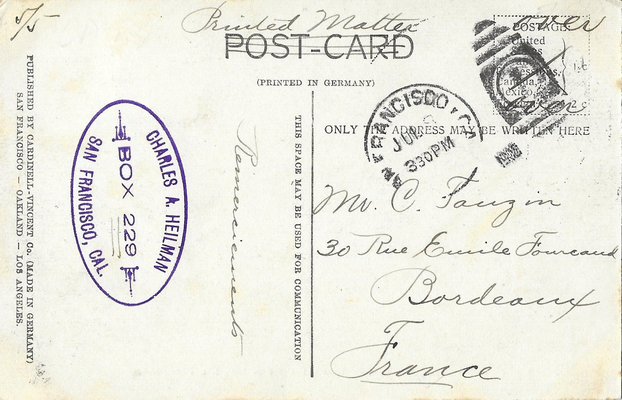 5/5
Printed Matter
over
POST-CARD
(PRINTED IN GERMANY)
POSTAGE:
United
States
Canada,
Mexico,
1c
SAN FRANCISCO, CAL.
JUN
330 PM
THIS SPACE MAY BE USED FOR COMMUNICATION
ONLY THE ADDRESS MAY BE WRITTEN HERE
PUBLISHED BY CARDINELL-VINCENT CO. (MADE IN GERMANY)
SAN FRANCISCO — OAKLAND — LOS ANGELES.
CHARLES A. HEILMAN
BOX 229
SAN FRANCISCO, CAL.
Remerciements
Mr. C. Fauzin
30 Rue Emile Fourcand
Bordeaux
France